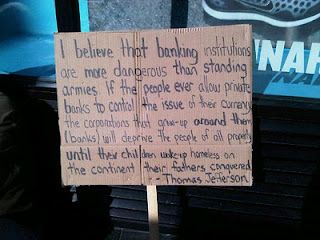 I believe that banking institutions
are more dangerous than standing
armies. If the people ever allow private
banks to control the issue of their currency
the corporations that grow-up around them
(banks) will deprive the people of all property
until their children wake-up homeless on
the continent their fathers conquered.
-- Thomas Jefferson
NNAR